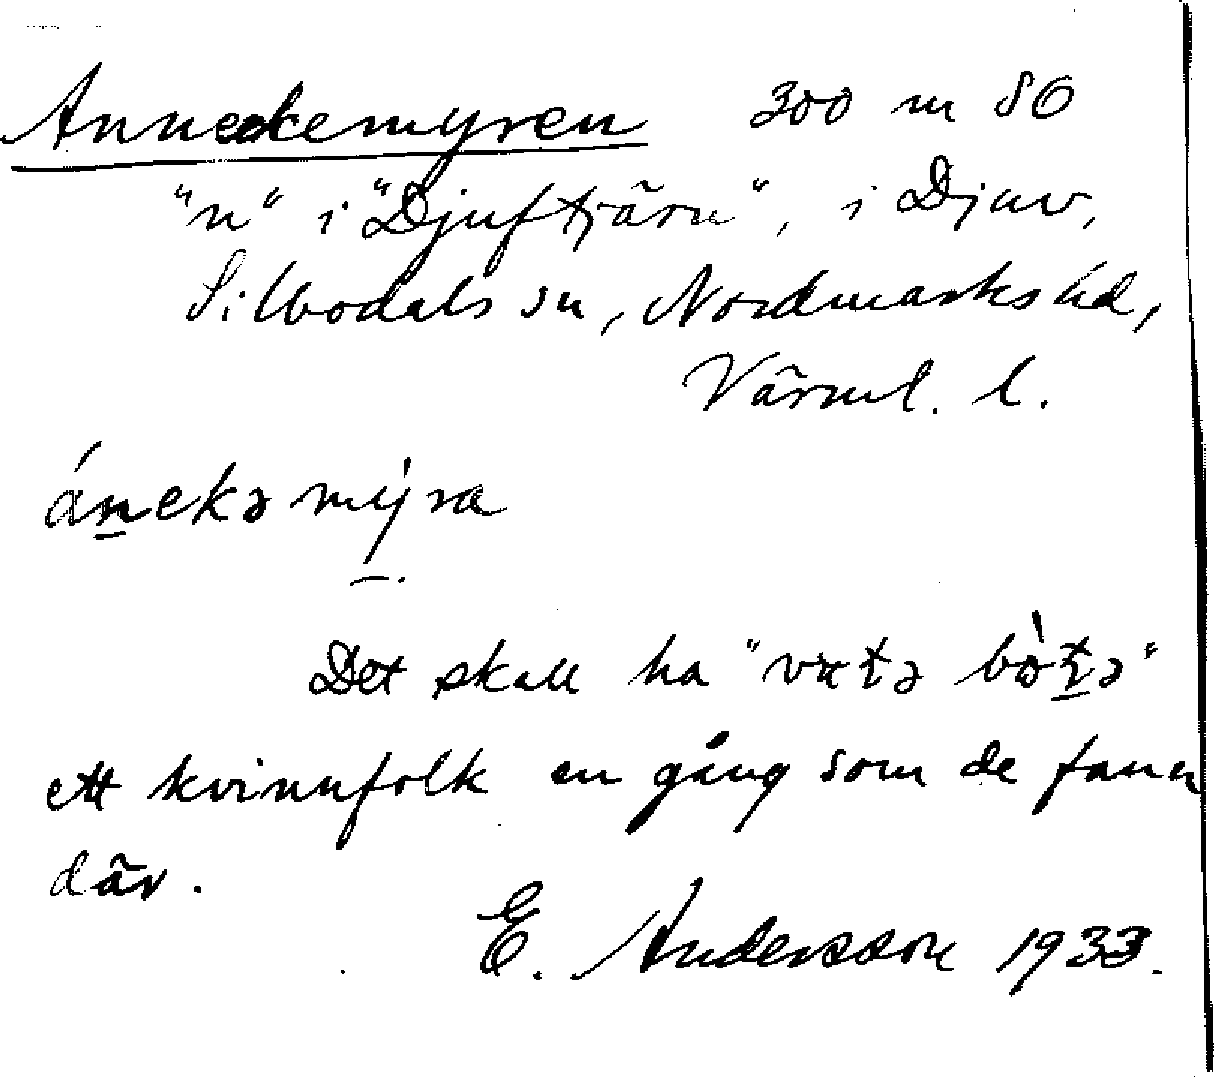 Anneckemyren 300 m SO
"n" i "Djuftjärn", i Djuv,
Silbodals sn, Nordmarks hd,
Värml. l.
ánekə mýra
Det skall ha "
ett kvinnfolk en gång som de fann
där.
E. Andersson 1933.